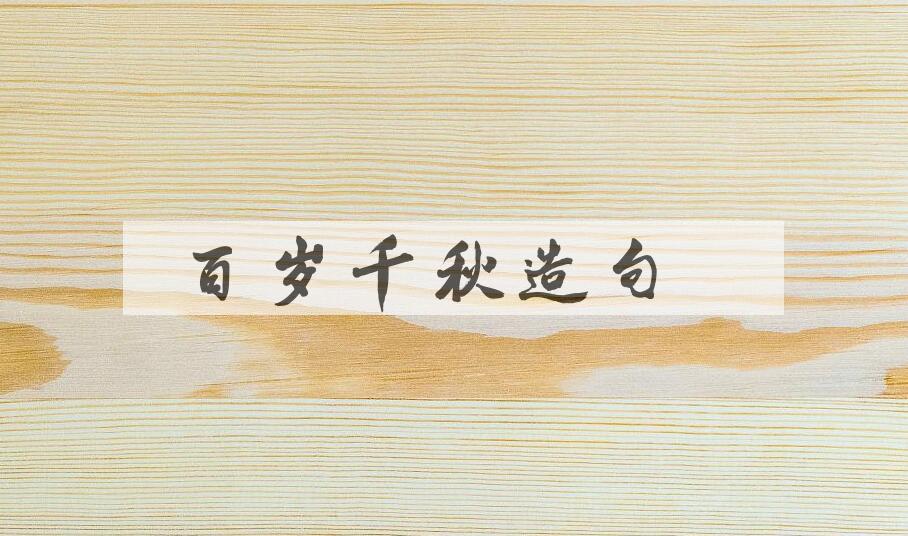 百岁千秋造句